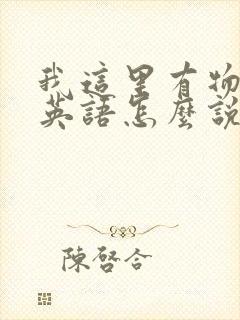 我這里有物
英語怎麼說
陳啓合